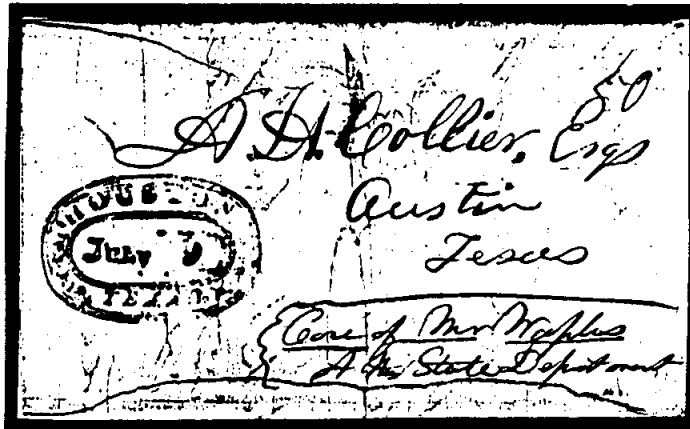 50
A. H. Collier, Esqr
Austin
Texas
HOUSTON
July 9
TEXAS
Care of Mr Waples
At the State Department